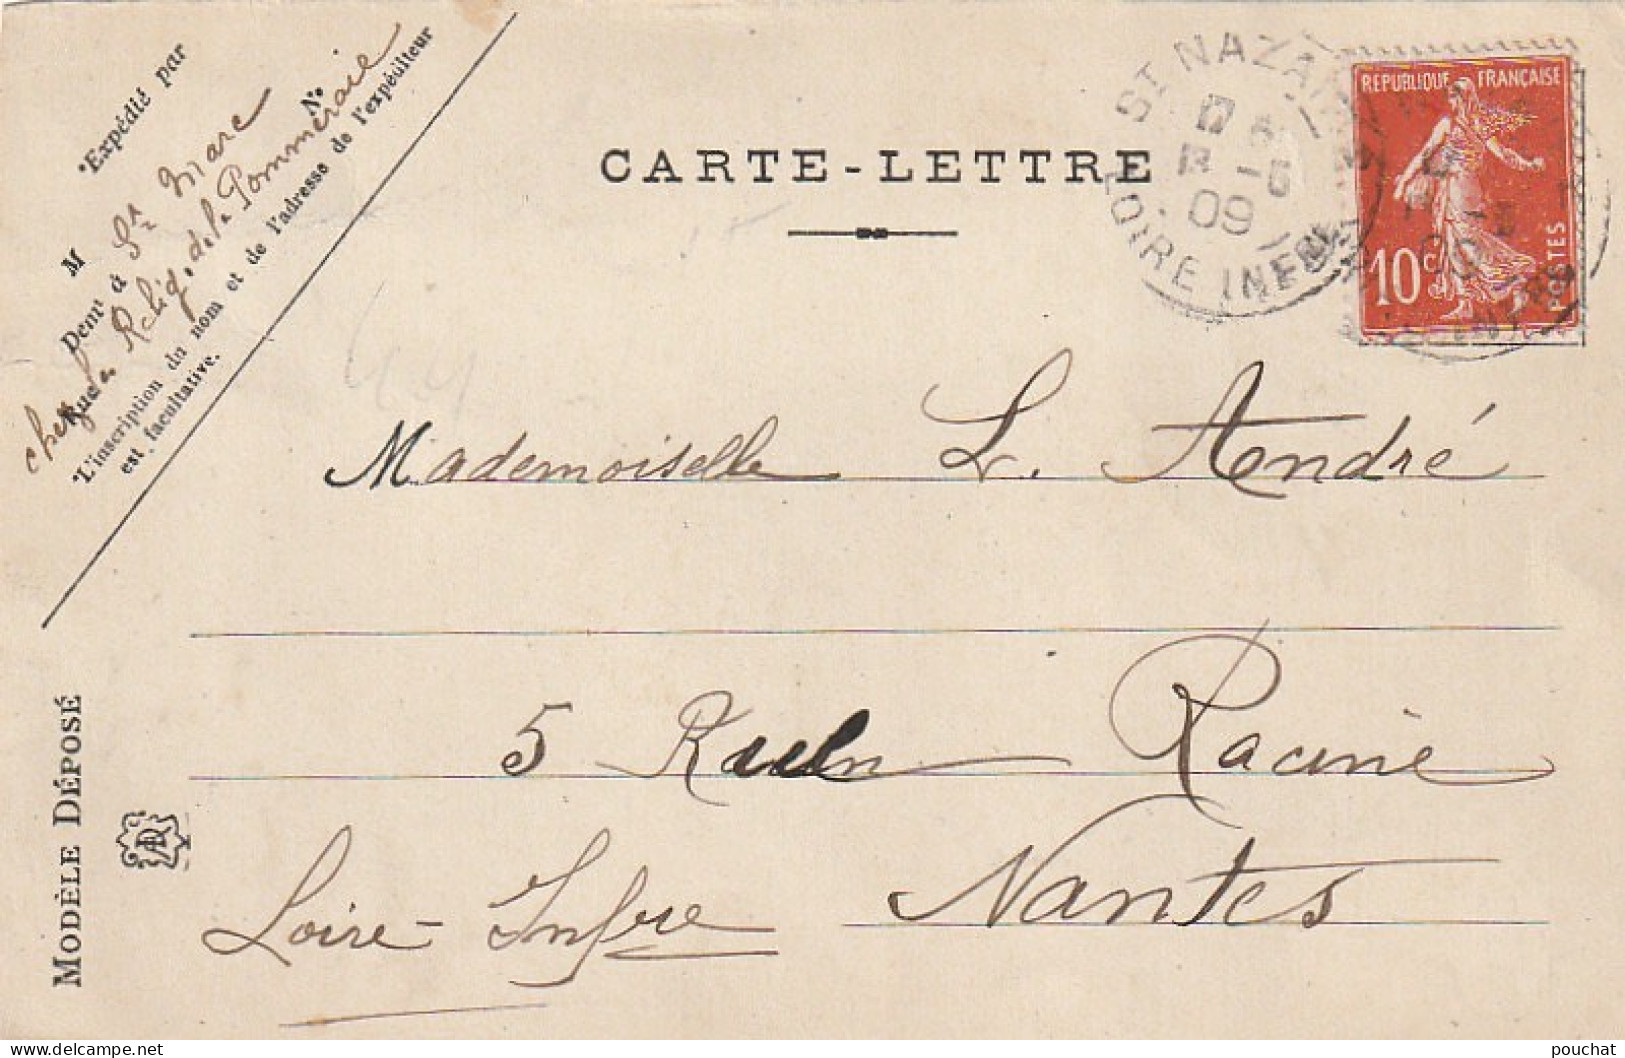 "Expédié par
M
Demt à St Marc
Rue
chez les Relig. de la Pommeraie
No
"L'inscription du nom et de l'adresse de l'expéditeur
est facultative.
CARTE-LETTRE
ST NAZAIRE
09
LOIRE INFRE
REPUBLIQUE FRANÇAISE
10c
POSTES
Mademoiselle L. André
5 Rue Racine
Nantes
Loire-Infre
MODÈLE DÉPOSÉ
pouchat